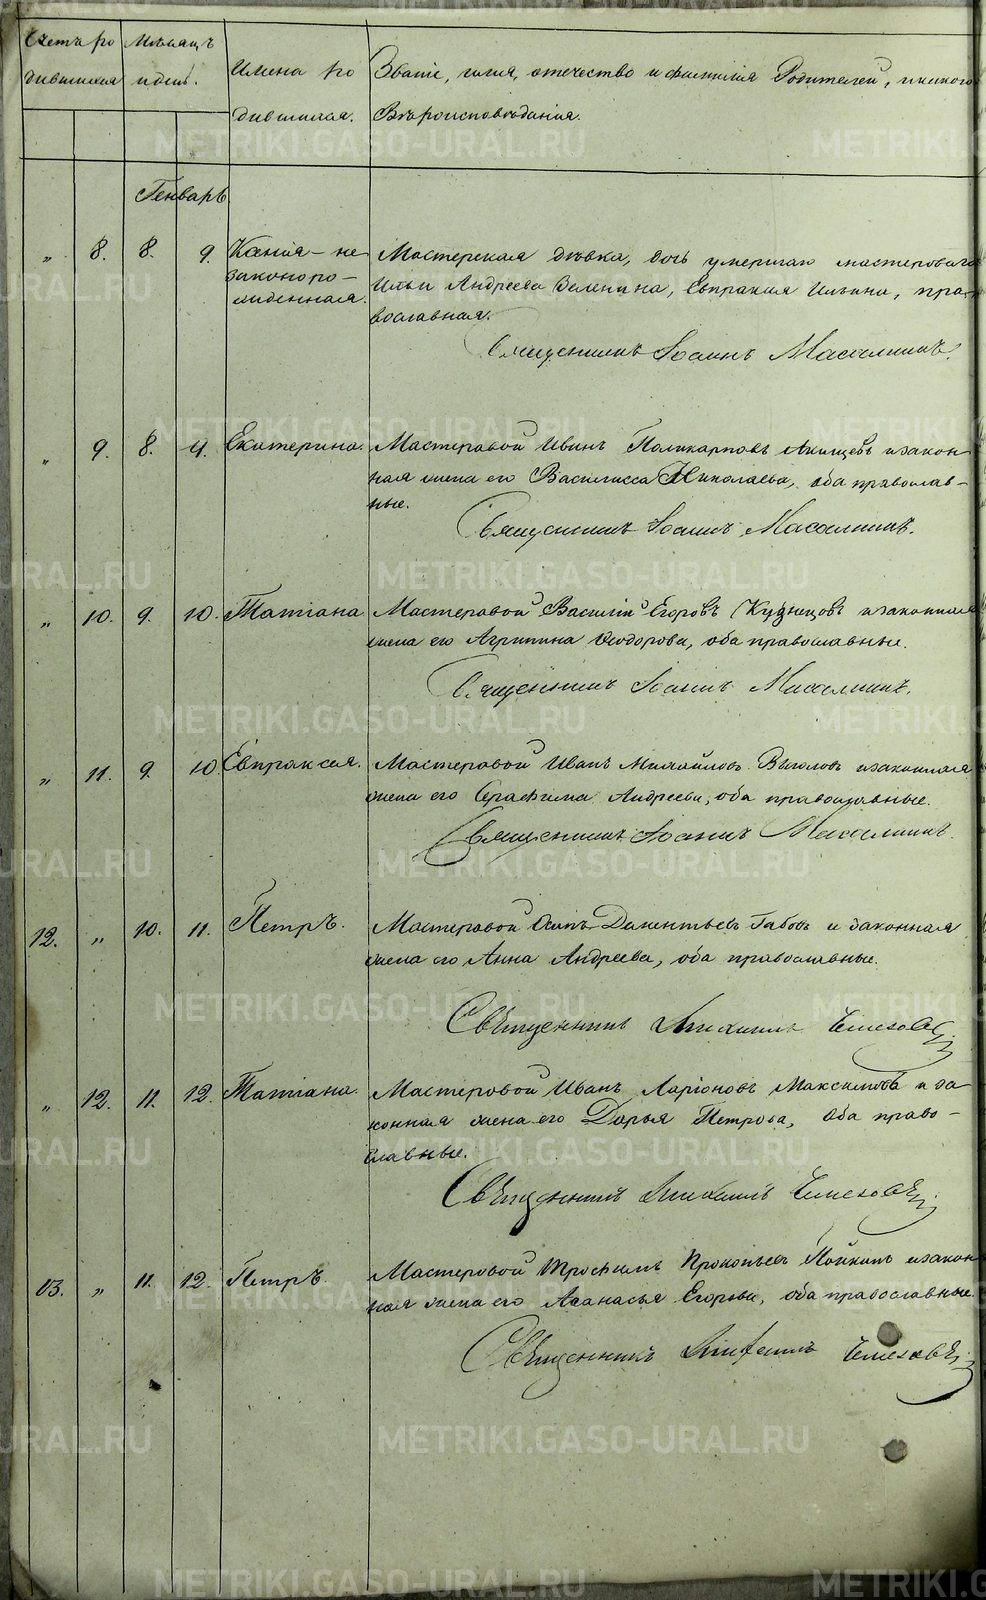 Счетъ ро Мѣсяцъ
дившихся и день. Имена ро Званіе, имя, отечество и фамилія Родителей, и какого
дившихся. Вѣроисповѣданія.
Генварь
„ 8. 8. 9. Ксенія – не Мастерская дѣвка, дочь умершаго мастероваго
законоро– Ильи Андреева Зеленина, Евпраксія Ильина, пра–
жденная. вославная.
Священникъ Іоаннъ
„ 9. 8. 9. Екатерина. Мастеровой Иванъ Поликарповъ и закон–
ная жена его Василисса Николаева, оба православ–
ные.
Священникъ Іоаннъ
„ 10. 9. 10. Татіана Мастеровой Василій Егоровъ Кузнецовъ и законная
жена его Агрипина Ѳеодорова, оба православные.
Священникъ Іоаннъ
„ 11. 9. 10 Евпраксія. Мастеровой Иванъ Михайловъ и законная
жена его Серафима Андреева, оба православные.
Священникъ Іоаннъ
12. „ 10. 11. Петръ. Мастеровой и законная
жена его Анна Андреева, оба православные.
Священникъ
„ 12. 11. 12. Татіана. Мастеровой Иванъ Ларіоновъ Максимовъ и за–
конная жена его Дарья Петрова, оба право–
славные.
Священникъ
13. „ 11. 12. Петръ. Мастеровой Трофимъ Прокопьевъ и закон
ная жена его Аѳанасья Егорова, оба православные.
Священникъ
METRIKI.GASO-URAL.RU